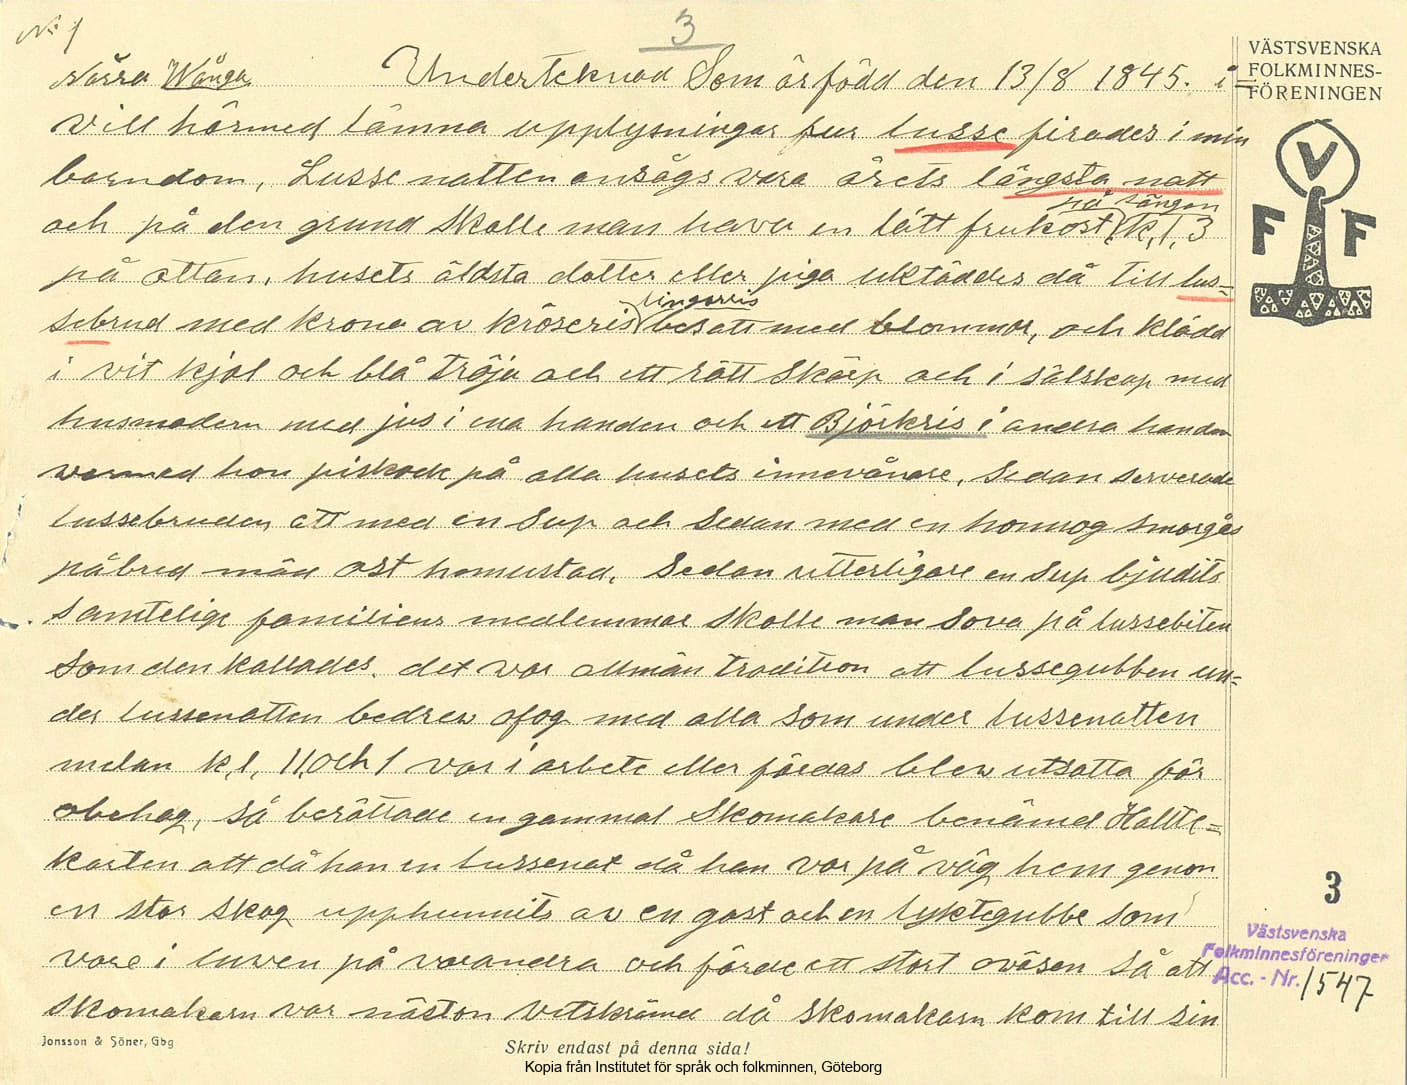 No 1
3
VÄSTSVENSKA
FOLKMINNES-
FÖRENINGEN
Norra Wånga Undertcknad Som är född den 13/8 1845. i
vill härmed lämna upplysningar hur lusse firades i min
barndom, Lusse natten ansågs vara årets längsta natt
på sängen
och på den grund skolle man hava en lätt frukost k,l, 3
på ottan, husets äldsta dotter eller piga uktäddes då till lus=
lingonris
sebrud med krona av kröseris besatt med blommor, och klädd
i vit kjol och blå tröja och ett rött skärp och i sälskap med
husmodern med jus i ena handen och ett Björkris i andra handen
varmed hon piskade på alla husets innevånare, Sedan serverade
lussebruden ett med en Sup och Sedan med en honnog smorgås
påbred mäd ost homustad, Sedan utterligare en Sup bjudits
samtelige familiens medlemmar skolle man Sova på lussebiten
Som den kallades. det var allmän tradition att lussegubben un=
der lussenatten bedrev ofog med alla som under lussenatten
melan k,l, 11, och 1 var i arbete eller färdas blev utsatta för
obehag, så berättade en gammal Skomakare benämd Hallte=
karten att då han en lussenat då han var på väg hem genon
en stor skog upphunnits av en gast och en lyktegubbe som
vore i luven på varandra och förde ett stort oväsen så att
skomakarn var näston vetskrämd då skomakarn kom till sin
V
F F
3
Västsvenska
Folkminnesföreningen
Acc. - Nr. 1547
Jonsson & Söner, Gbg
Skriv endast på denna sida!
Kopia från Institutet för språk och folkminnen, Göteborg